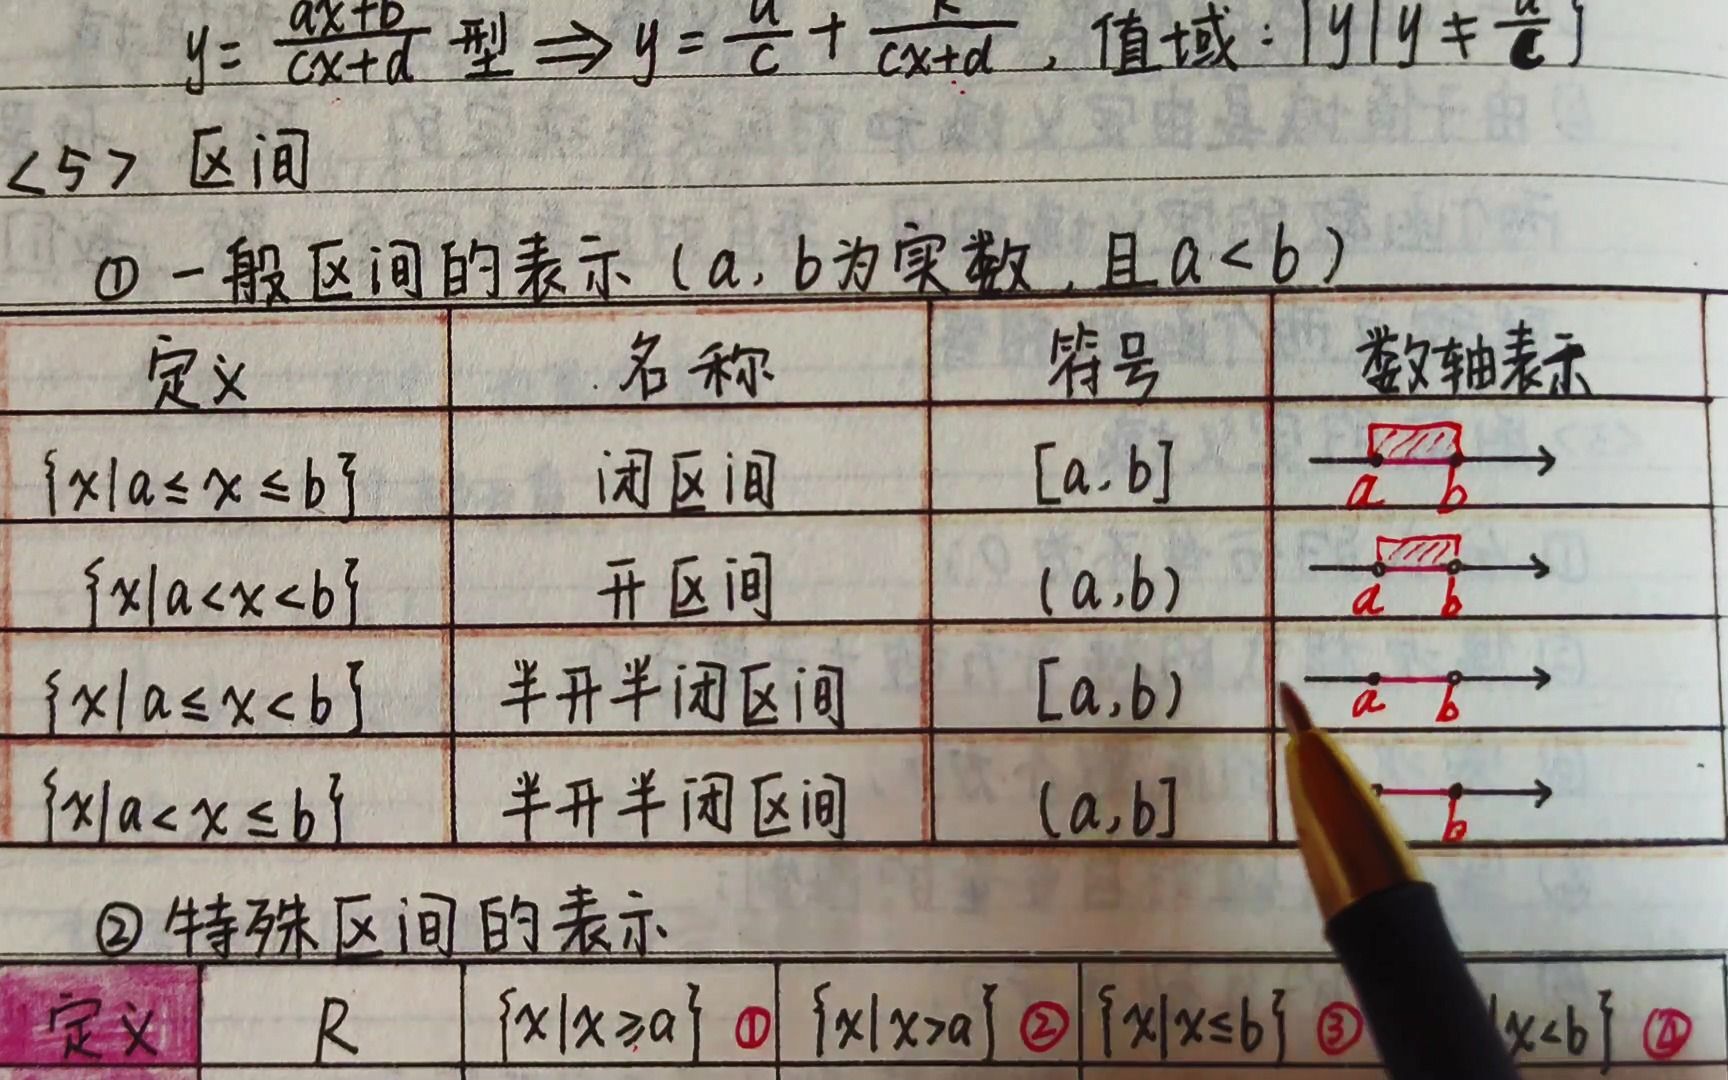 y = ax+b/cx+d 型 ⇒ y = a/c + k/cx+d , 值域: {y|y≠a/c}
<5> 区间
① 一般区间的表示 (a, b为实数, 且a<b)
定义 名称 符号 数轴表示
{x|a≤x≤b} 闭区间 [a,b] a b
{x|a<x<b} 开区间 (a,b) a b
{x|a≤x<b} 半开半闭区间 [a,b) a b
{x|a<x≤b} 半开半闭区间 (a,b] b
② 特殊区间的表示
定义 R {x|x≥a} ① {x|x>a} ② {x|x≤b} ③ x<b} ④